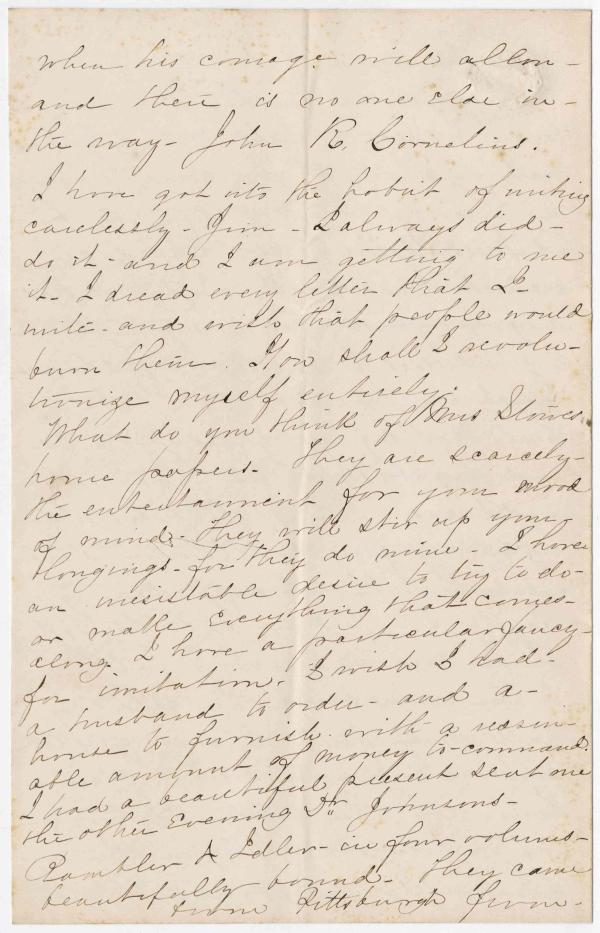 when his courage will allow -
and there is no one else in -
the way - John R. Cornelius.
I have got into the habit of writing
carelessly - Jim - I always did -
do it - and I am getting to rue
it - I dread every letter that I -
write - and wish that people would
burn them. How shall I revolu-
tionize myself entirely.
What do you think of Mrs Stowes
home papers - They are scarcely -
the entertainment for your mood
of mind - They will stir up your
longings - for they do mine - I have
an inesistable desire to try to do -
or make Everything that comes -
along. I have a particular fancy -
for imitation. I wish I had -
a husband to order - and a -
house to furnish with a reason-
able amount of money to - command.
I had a beautiful present sent me
the other Evening Dr Johnsons -
Rambler & Idler - in four volumes -
beautifully bound - They came
from Pittsburgh from -